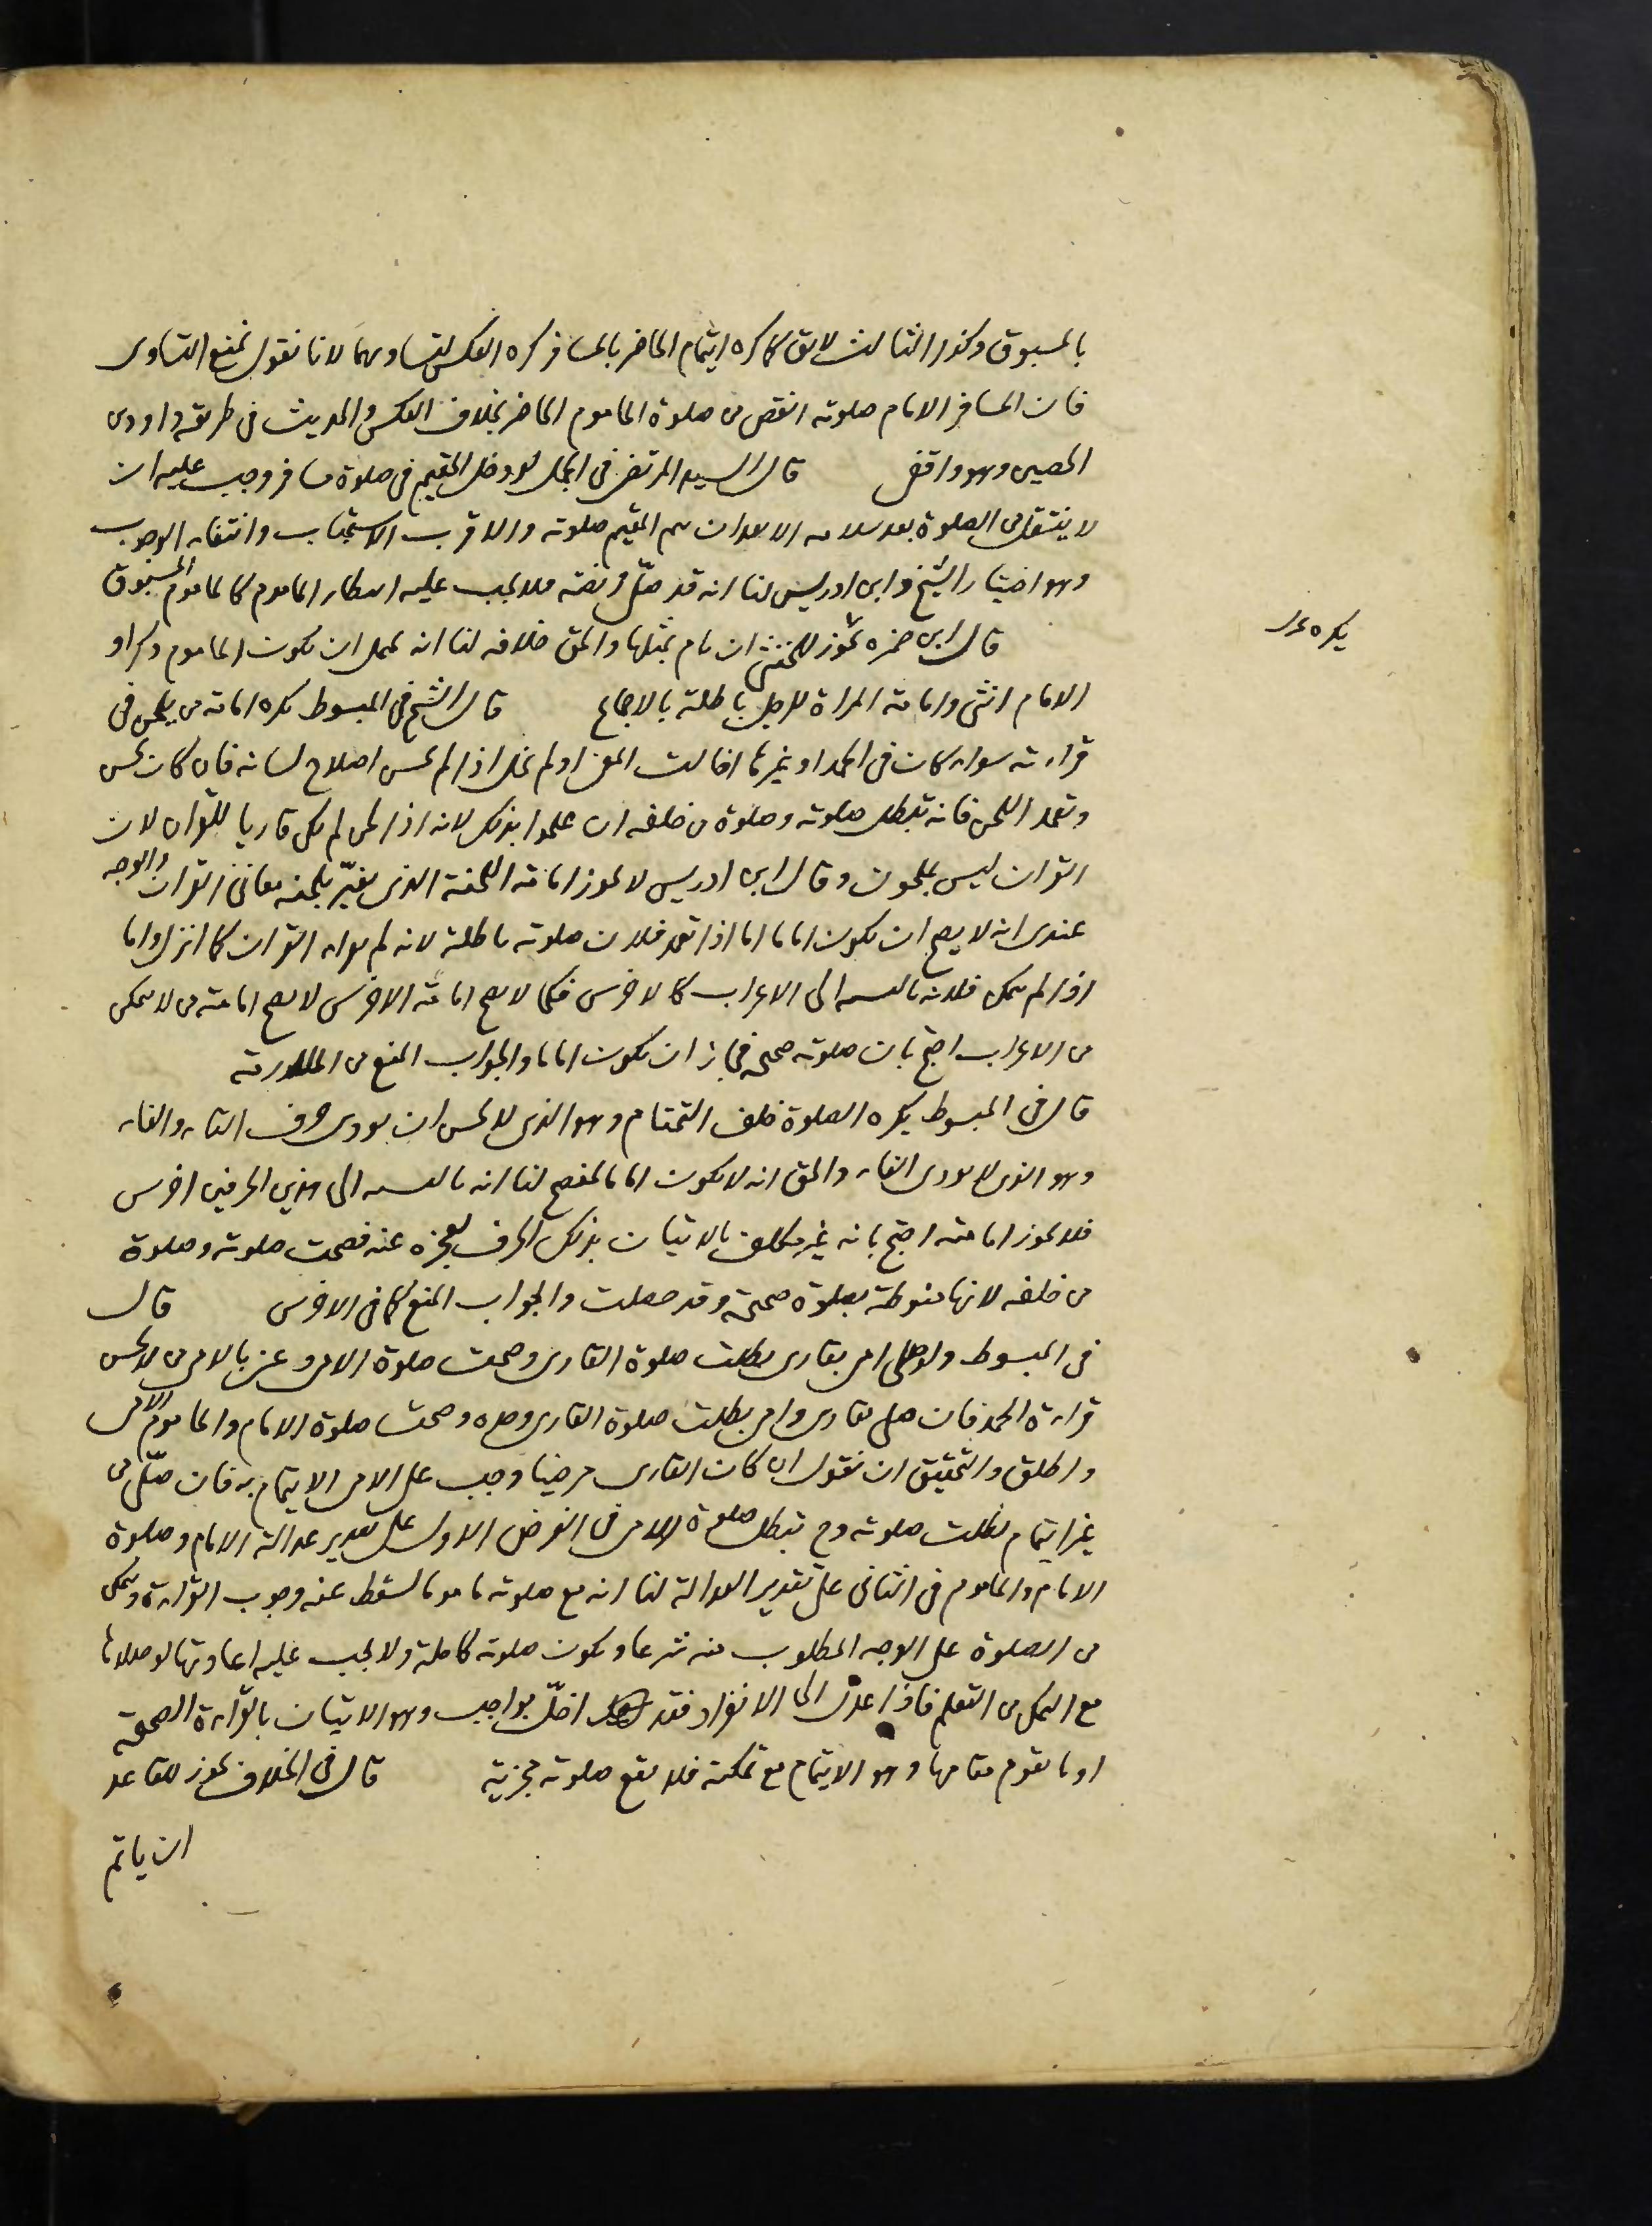 بالمسبوق وكذا الثالث لا يق كما كره ايتمام الحاضر بالمسافر كره العكس لتساويهما لانا نقول نمنع التساوى
فان المسافر الامام صلوته انقص من صلوة الماموم الحاضر بخلاف العكس والحديث فى طريقه داود بن
الحصين وهو واقفى قال السيد المرتضى فى الجمل لو دخل المقيم فى صلوة مسافر وجب عليه ان
لا ينتقل من الصلوة بعد سلامه الا بعد ان يتم المقيم صلوته والاقرب الاستحباب وانتفاء الوجوب
وهو اختيار الشيخ وابن ادريس لنا انه قد صلى فرضه فلا يجب عليه انتظار الماموم كالماموم المسبوق
قال ابن حمزه يجوز للخنثى ان يام بمثلها والحق خلافه لنا انه يحتمل ان يكون الماموم ذكرا و
يكره
الامام انثى وامامة المراة للرجل باطلة بالاجماع قال الشيخ فى المبسوط يكره امامة من يلحن فى
قراءته سواء كان فى الحمد او غيرها احالت المعنى او لم تحل اذا لم يحسن اصلاح لسانه فان كان يحسن
وتعمد اللحن فانه تبطل صلوته وصلوة من خلفه ان علموا بذلك لانه اذا لحن لم يكن قاريا للقران لان
القران ليس بملحون وقال ابن ادريس لا يجوز امامة اللحنة الذى يغيّر بلحنه معانى القران والوجه
عندى انه لا يصح ان يكون اماما اما اذا تعمد فلان صلوته باطلة لانه لم يقراء القران كما انزل واما
اذا لم يتمكن فلانه بالنسبه الى الاعراب كالاخرس فكما لا يصح امامة الاخرس لا يصح امامة من لا يتمكن
من الاعراب احتج بان صلوته صحيحه فجاز ان يكون اماما والجواب المنع من الملازمة
قال فى المبسوط يكره الصلوة خلف التمتام وهو الذى لا يحسن ان يودى حرف التاء والفاء
وهو الذى لا يودى الفاء والحق انه لا يكون اماما لمفصح لنا انه بالنسبه الى هذين الحرفين اخرس
فلا يجوز امامته احتج بانه غير مكلف بالاتيان بذلك الحرف لعجزه عنه فصحت صلوته وصلوة
من خلفه لانها منوطة بصلوة صحيحة وقد حصلت والجواب المنع كما فى الاخرس قال
فى المبسوط ولو صلى امى بقارى بطلت صلوة القارى وصحت صلوة الامى وعنى بالامى من لا يحسن
قراءة الحمد فان صلى بقارى وامى بطلت صلوة القارى وحده وصحت صلوة الامام والماموم الامى
واطلق والتحقيق ان نقول ان كان القارى مرضيا وجب على الامى الايتمام به فان صلّى من
غير ايتمام بطلت صلوته وح تبطل صلوة الامى فى الفرض الاول على تقدير عدالة الامام وصلوة
الامام والماموم فى الثانى على تقدير العدالة لنا انه مع صلوته ماموما يسقط عنه وجوب القراءة ويتمكن
من الصلوة على الوجه المطلوب منه شرعا ويكون صلوته كاملة ولا يجب عليه اعادتها لو صلاها
مع التمكن من التعلم فاذا عدل الى الانفراد فقد اخلّ بواجب وهو الاتيان بالقراءة الصحيحة
او ما يقوم مقامها وهو الايتمام مع تمكنه فلا يقع صلوته مجزية قال فى الخلاف يجوز للقاعد
ان ياتم